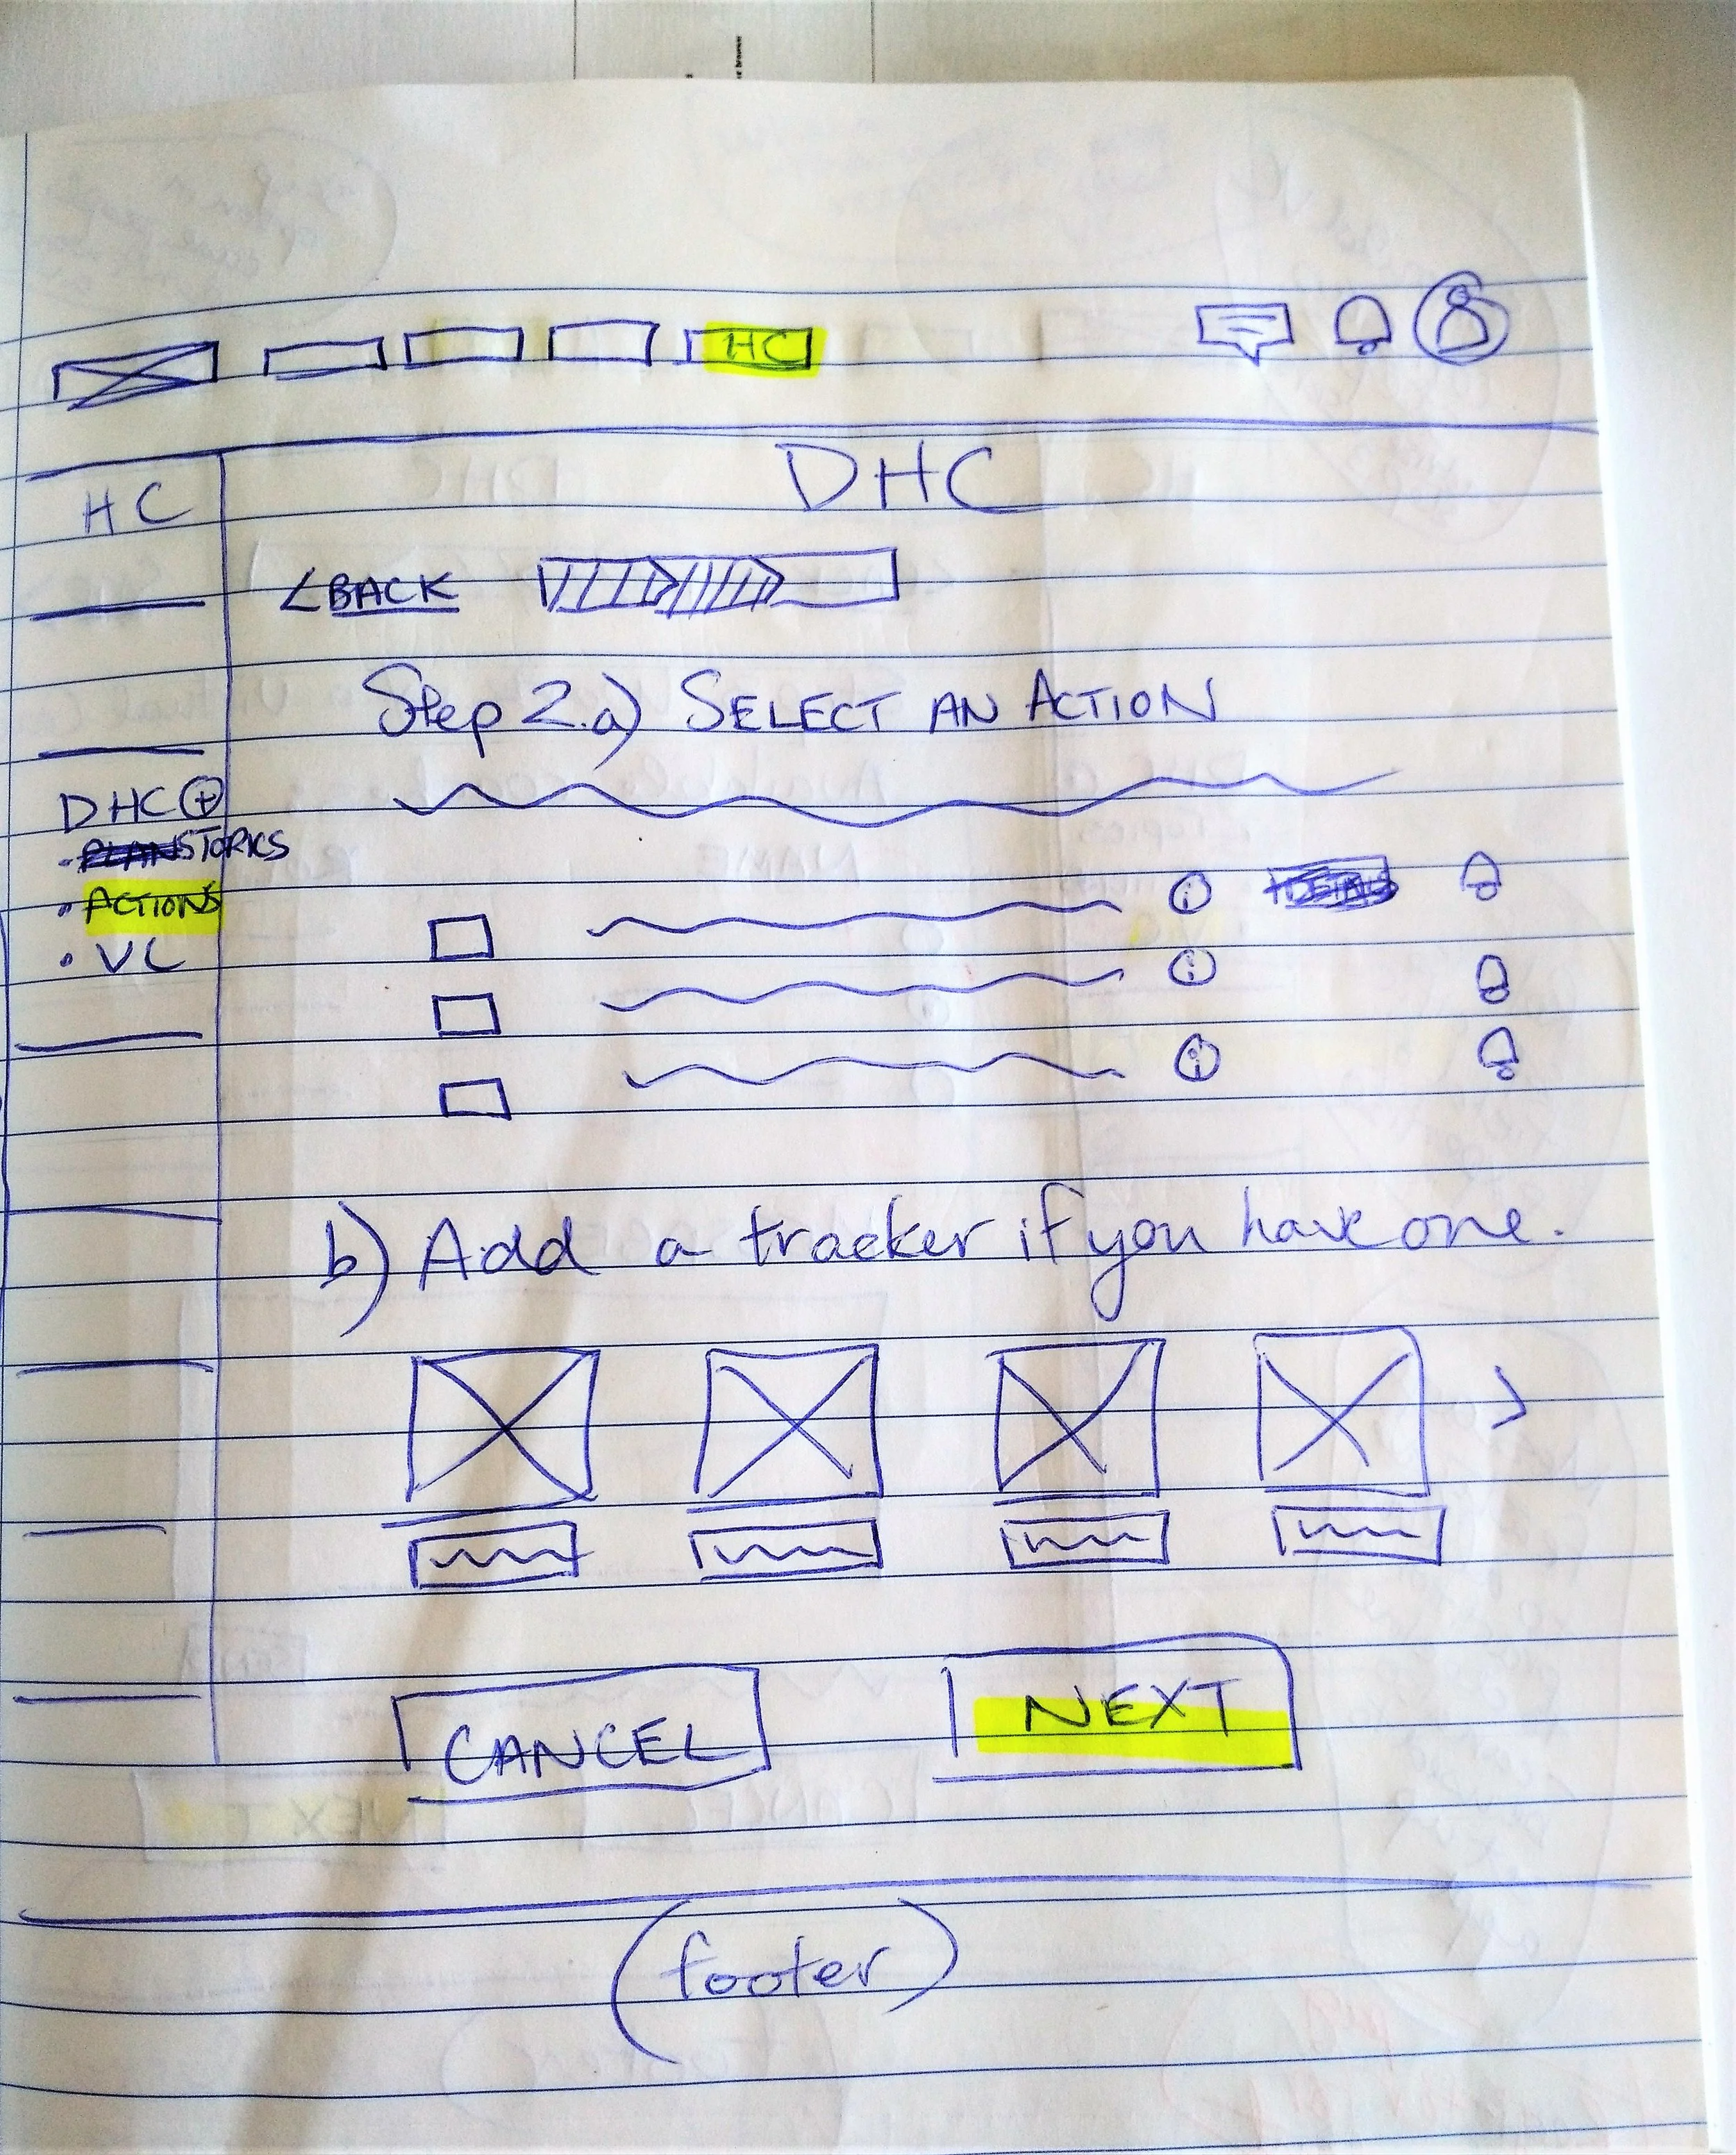 HC
HC
DHC
< BACK
Step 2.a) SELECT AN ACTION
DHC +
• TOPICS
• ACTIONS
• VC
b) Add a tracker if you have one.
CANCEL
NEXT
(footer)